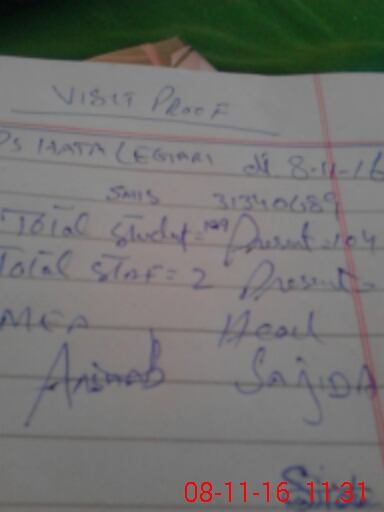 VISIT PROOF
Ps HATA LEGHARI dt 8-11-16
SMIS 31340489
Total Student = 109 Present = 104
Total Staf = 2 Present =
MEA Head
SAJIDA
08-11-16 11:31